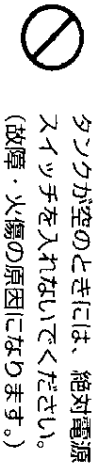 タンクが空のときには、絶対電源
スイッチを入れないでください。
(故障・火傷の原因になります。)